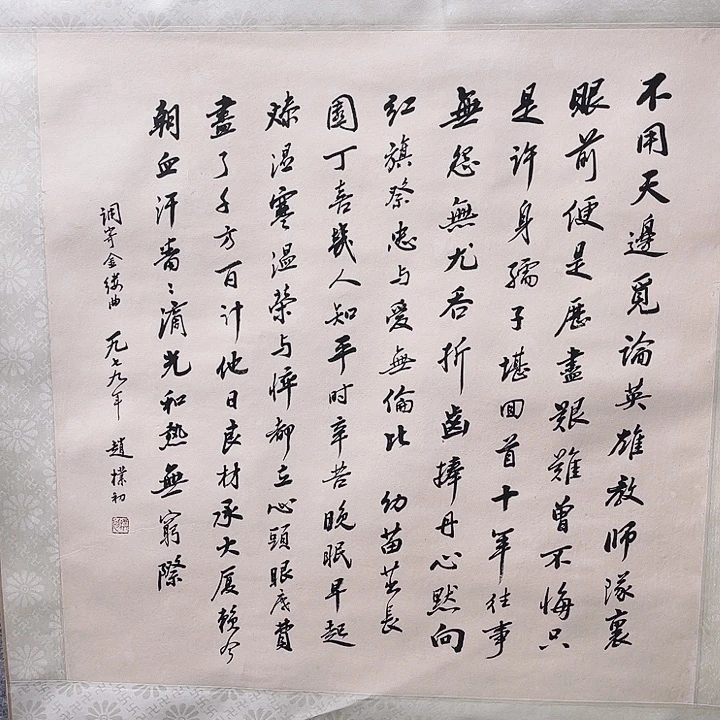 不用天邊覓論英雄教師隊裏
眼前便是歷盡艱難曾不悔只
是許身孺子堪回首十年往事
無怨無尤吞折齒捧丹心默向
紅旗祭忠与愛無倫比 幼苗茁長
園丁喜幾人知平时辛苦晚眠早起
燥湿寒温榮与悴都在心頭眼底費
盡了千方百计他日良材承大厦賴今
朝血汗番〻滴光和熱無窮際
调寄金縷曲 一九七九年 趙樸初